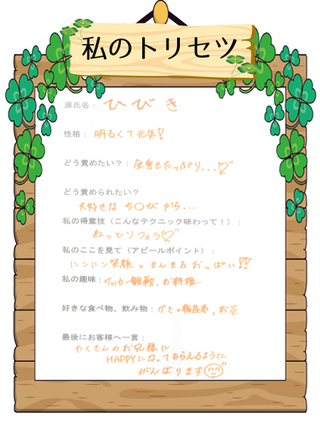 私のトリセツ
源氏名： ひびき
性格： 明るくて元気!!
どう責めたい？： 全身をたっぷり...♡
どう責められたい？
大好きな ち〇び から...
私の得意技（こんなテクニック味わって！）：
ねっとりフェラ♡
私のここを見て（アピールポイント）：
にこにこ笑顔 まんまるおっぱい!!
私の趣味： サッカー観戦、お料理
好きな食べ物、飲み物： 、お茶
最後にお客様へ一言：
たくさんのお兄様に
HAPPYになってもらえるように
がんばります